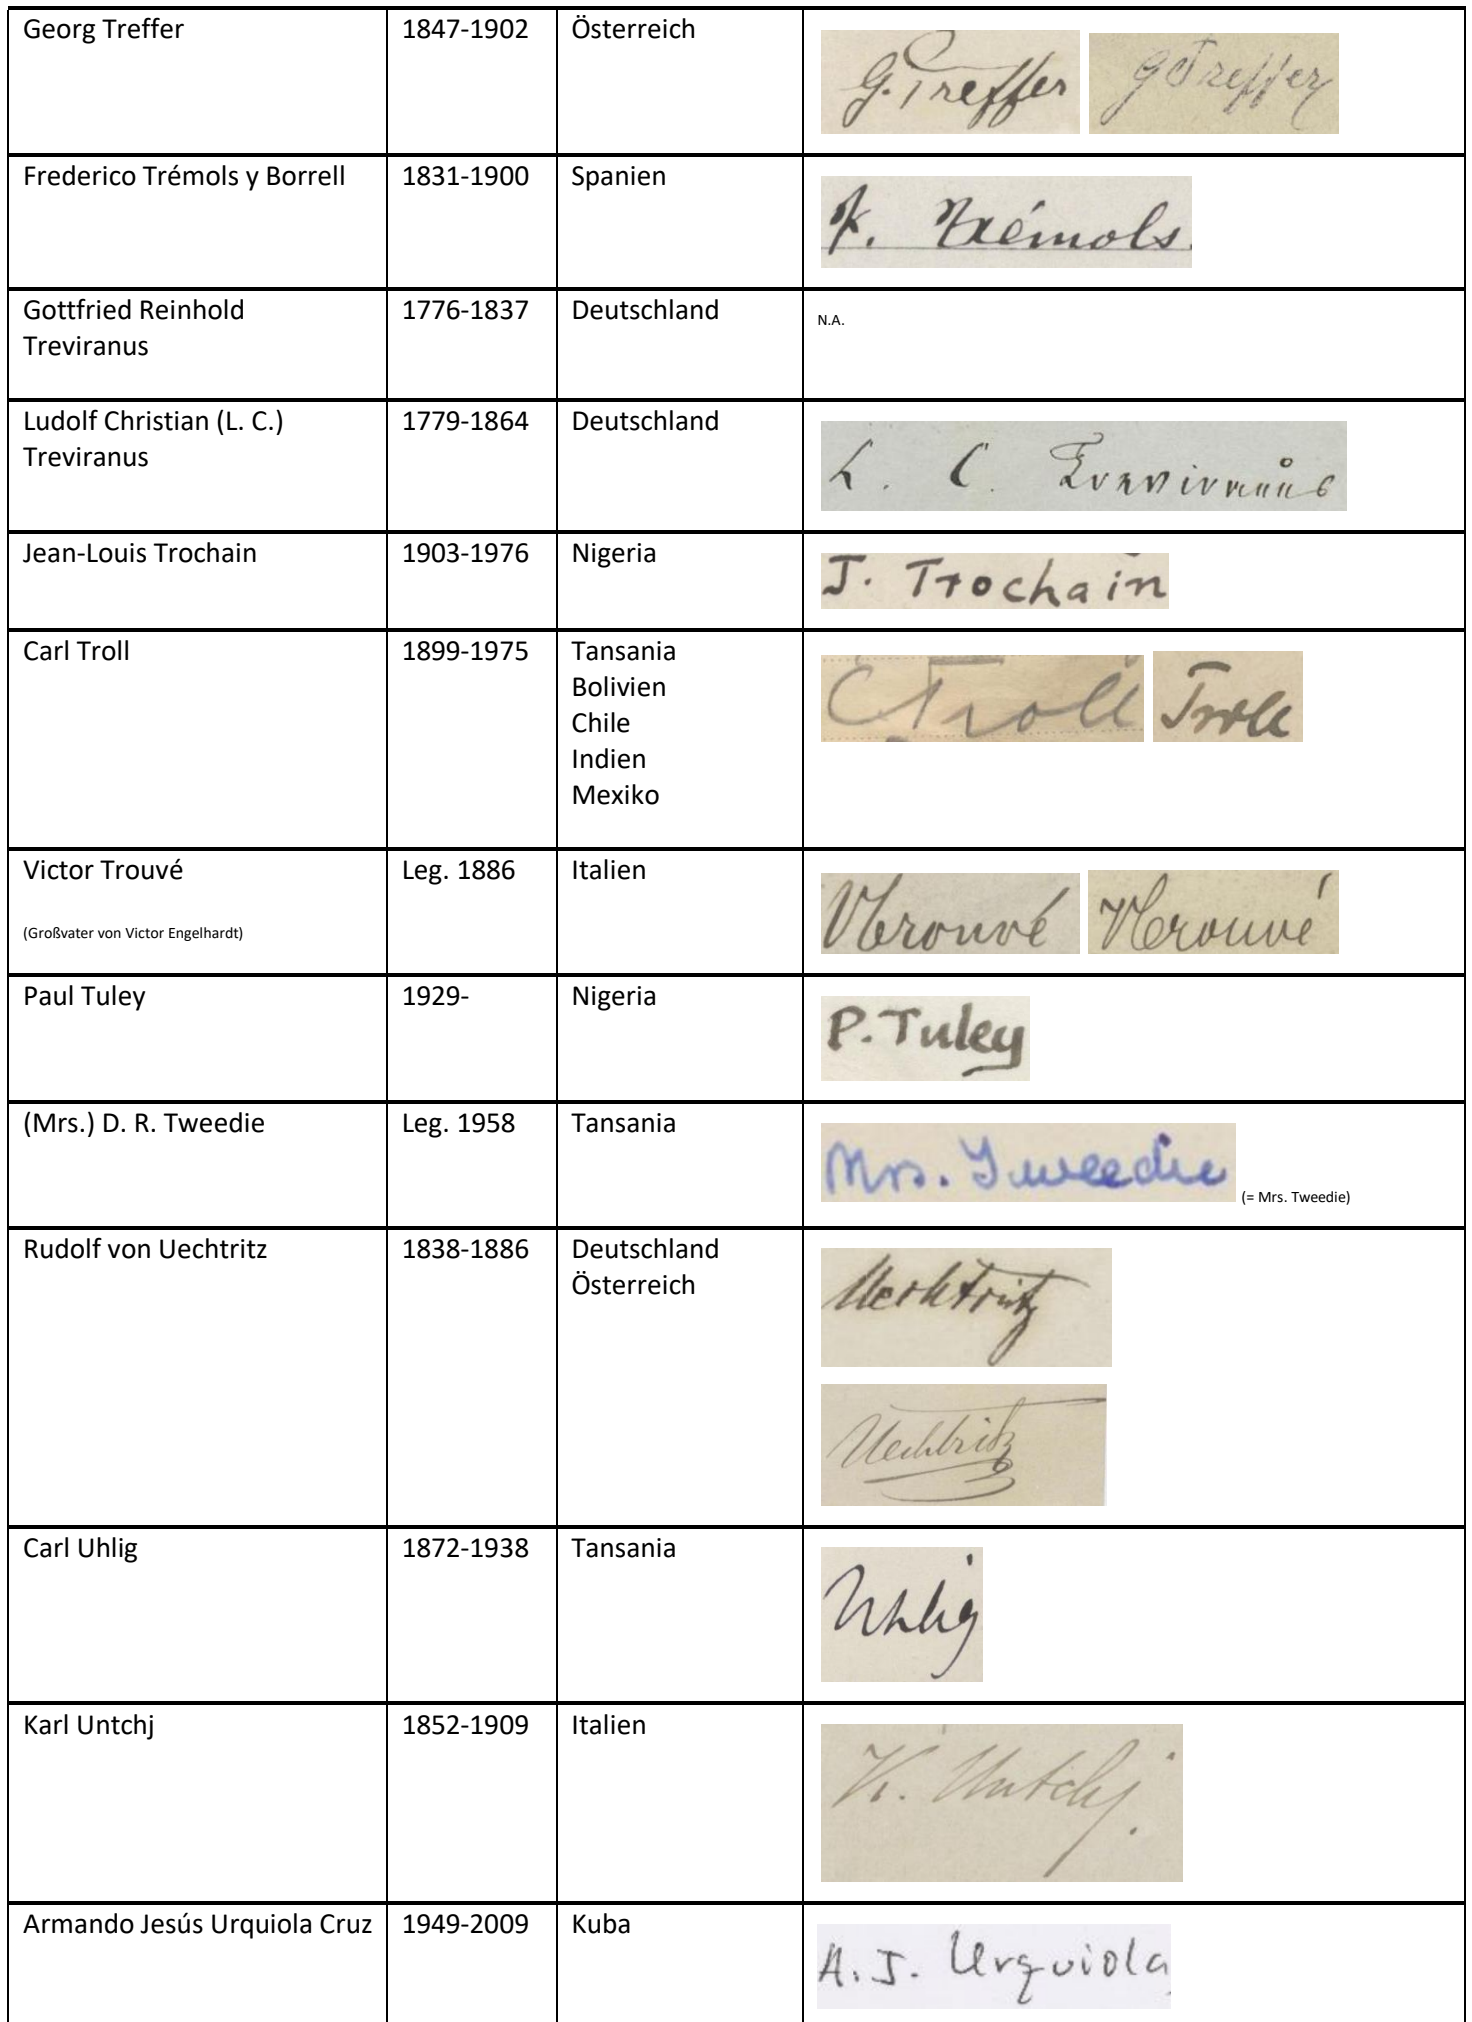 Georg Treffer 1847-1902 Österreich G. Treffer G Treffer
Frederico Trémols y Borrell 1831-1900 Spanien F. Trémols.
Gottfried Reinhold 1776-1837 Deutschland N.A.
Treviranus
Ludolf Christian (L. C.) 1779-1864 Deutschland L. C. Treviranus
Treviranus
Jean-Louis Trochain 1903-1976 Nigeria J. Trochain
Carl Troll 1899-1975 Tansania CTroll Troll
Bolivien
Chile
Indien
Mexiko
Victor Trouvé Leg. 1886 Italien VTrouvé VTrouvé
(Großvater von Victor Engelhardt)
Paul Tuley 1929- Nigeria P. Tuley
(Mrs.) D. R. Tweedie Leg. 1958 Tansania Mrs. Tweedie (= Mrs. Tweedie)
Rudolf von Uechtritz 1838-1886 Deutschland Uechtritz
Österreich
Uechtritz
Carl Uhlig 1872-1938 Tansania Uhlig
Karl Untchj 1852-1909 Italien K. Untchj.
Armando Jesús Urquiola Cruz 1949-2009 Kuba A. J. Urquiola